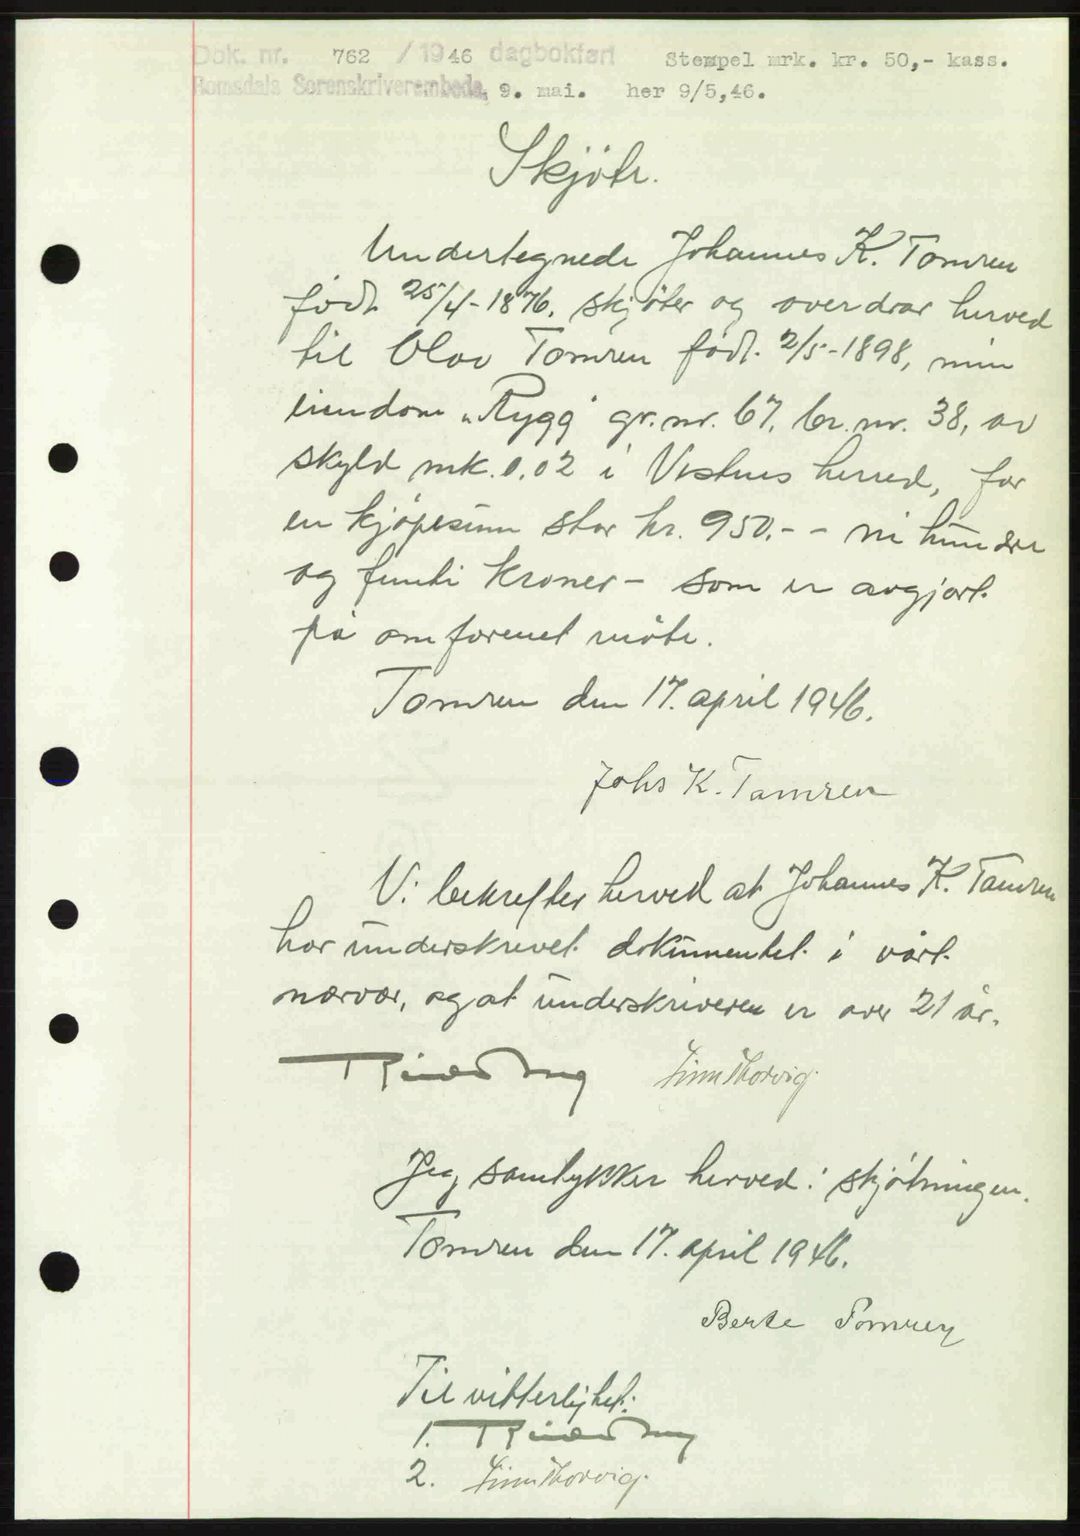 Dok. nr. 762 / 1946 dagbokført Stempel mrk. kr. 50,- kass.
Romsdals Sorenskriverembede, 9. mai. her 9/5,46.
Skjöte.
Undertegnede Johannes K. Tomren
født 25/4-1876, skjöter og overdrar herved
til Olav Tomren født 2/5-1898, min
eiendom "Rygg" gr.nr. 67, br.nr. 38, av
skyld mk. 0.02 i Vestnes herred, for
en kjöpesum stor kr. 950.- - ni hundre
og femti kroner - som er avgjort
på omforenet måte.
Tomren den 17. april 1946.
Johs K. Tomren
Vi bekrefter herved at Johannes K. Tomren
har underskrevet dokumentet i vårt
nærvær, og at underskriveren er over 21 år.
Finn Thorvig.
Jeg samtykker herved i skjötningen.
Tomren den 17. april 1946.
Berte Tomren
Til vitterlighet:
1.
2. Finn Thorvig.